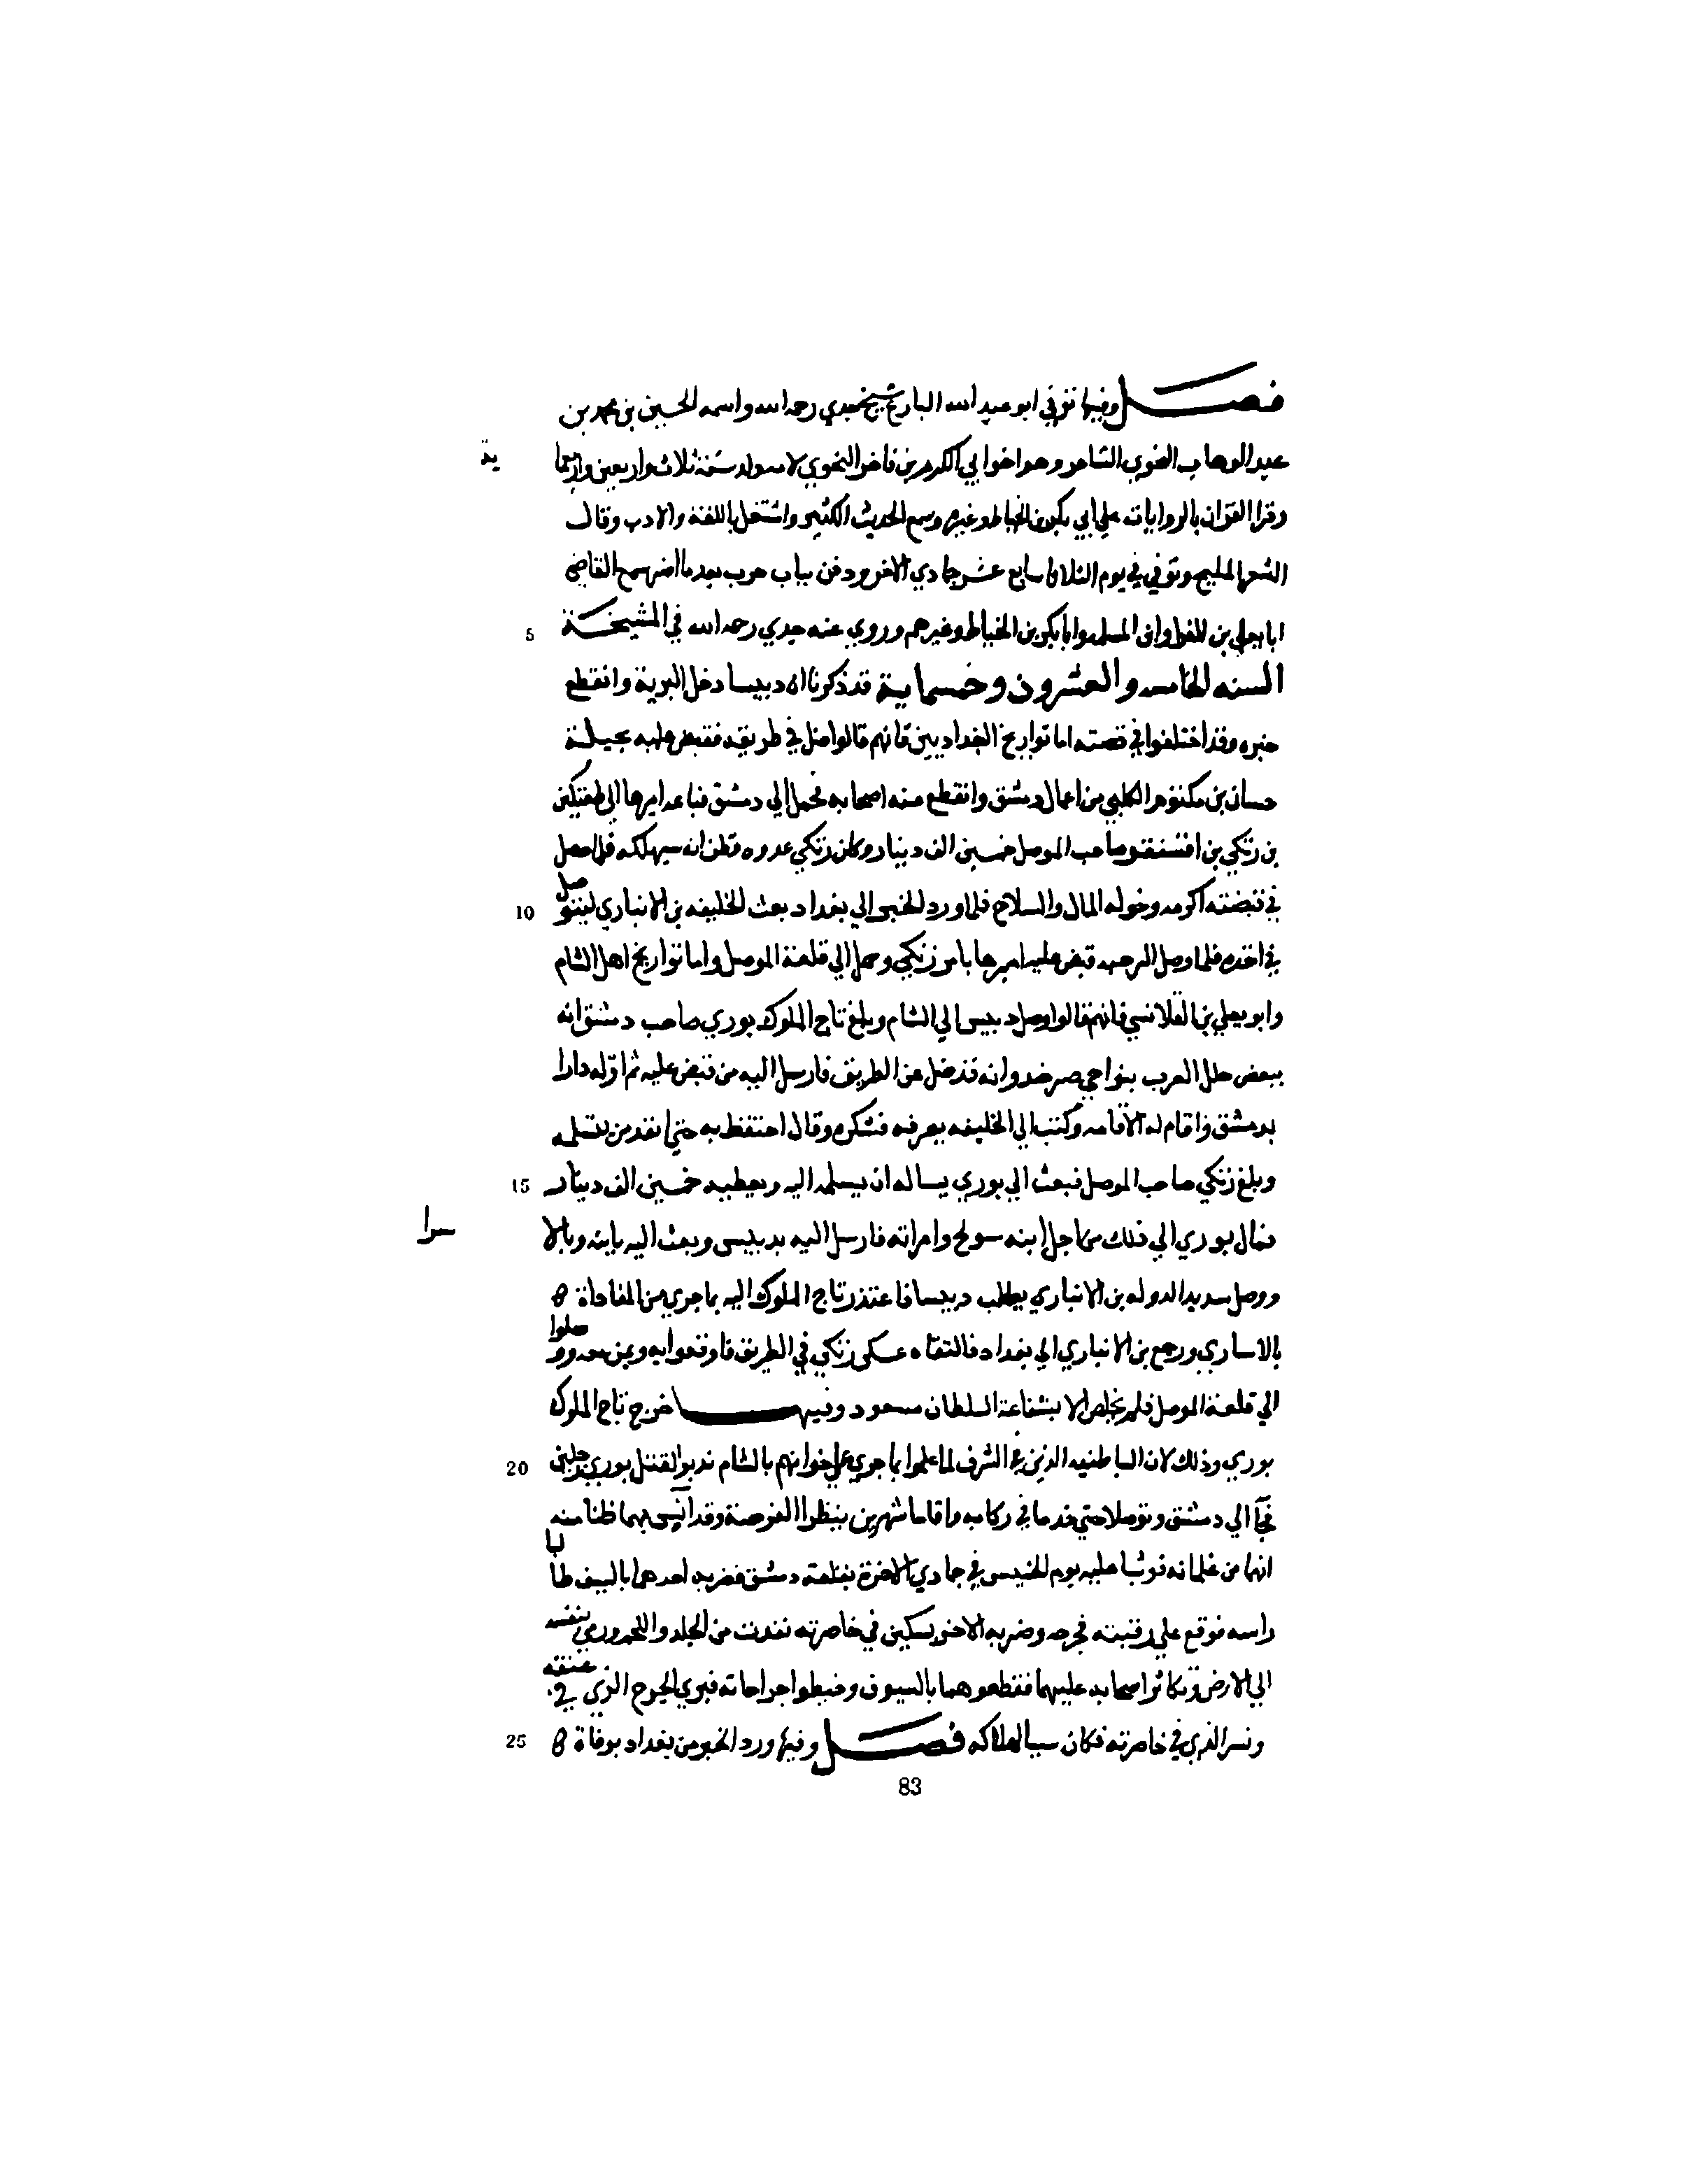 فصل وفيها توفي ابو عبد الله البارع شيخ جدي رحمه الله واسمه الحسين بن محمد بن
عبد الوهاب النحوي الشاعر وهو اخو ابي الكرم بن فاخر النحوي لامه ولد سنة ثلاث واربعين واربعما
ية
وقرا القران بالروايات علي ابي بكر بن الخياط وغيره وسمع الحديث الكثير واشتغل باللغة والادب وقال
الشعر المليح وتوفي في يوم الثلاثا سابع عشر جمادي الاخره ودفن بباب حرب بعد ما اضر سمع القاضي
5 ابا يعلي بن الفرا وابن المسلمه وابا بكر بن الخياط وغيرهم وروي عنه جدي رحمه الله في المشيخة
السنه الخامسه والعشرون وخمسماية قد ذكرنا ان دبيسا دخل البرية وانقطع
خبره وقد اختلفوا في قصته اما تواريخ البغداديين فانهم قالوا ضل في طريقه فقبض عليه بحيلة
حسان بن مكتوم الكلبي من اعمال دمشق وانقطع عنه اصحابه فحمل الي دمشق فباعه اميرها ابن طغتكين
بن زنكي بن اقسنقر صاحب الموصل خمسين الف دينار وكان زنكي عدوه فظن انه سيهلكه فلما حصل
10 في قبضته اكرمه وخوله المال والسلاح فلما ورد الخبر الي بغداد بعث الخليفه بن الانباري ليتوصل
في اخذه فلما وصل الرحبه قبض عليه اميرها بامر زنكي وحمل الي قلعة الموصل واما تواريخ اهل الشام
وابو يعلي بن القلانسي فانهم قالوا وصل دبيس الي الشام وبلغ تاج الملوك بوري صاحب دمشق انه
ببعض حلل العرب بنواحي صرخد وانه قد ضل عن الطريق فارسل اليه من قبض عليه ثم انزله دارا
بدمشق واقام له الاقامه وكتب الي الخليفه يعرفه فشكره وقال احتفظ به حتي انفد من يتسلمه
15 وبلغ زنكي صاحب الموصل فبعث الي بوري يساله ان يسلمه اليه ويعطيه خمسين الف دينار
فمال بوري الي ذلك من اجل ابنه سونج وامراته فارسل اليه بدبيس وبعث اليه بابنه وبالا
سرا
ووصل سديد الدوله بن الانباري يطلب دبيسا فاعتذر تاج الملوك اليه بما جري من المفاداة
بالاساري ورجع بن الانباري الي بغداد فالتقاه عسكر زنكي في الطريق فاوقعوا به وبمن معه ووصلوا
الي قلعة الموصل فلم يخلص الا بشفاعة السلطان مسعود وفيها خرج تاج الملوك
20 بوري وذلك لان الباطنيه الذين في الشرف لما علموا بما جري علي اخوانهم بالشام ندبوا لقتل بوري رجلين
فجآ الي دمشق وتوصلا حتي خدما في ركابه واقاما شهرين ينتظرا الفرصة وقد انس بهما ظنا منه
انهما من غلمانه فوثبا عليه يوم الخميس في جمادي الاخرة بقلعة دمشق فضربه احدهما بالسيف طالبا
راسه فوقع علي رقبته فجرحه وضربه الاخر بسكين في خاصرته نفدت من الجلد واللحم ورمي بنفسه
الي الارض وتكاثر اصحابه عليهما فقطعوهما بالسيوف وخيطوا جراحاته فبري الجرح الذي في عنقه
25 ونسر الذي في خاصرته فكان سببا لهلاكه فصل وفيها ورد الخبر من بغداد بوفاة
83